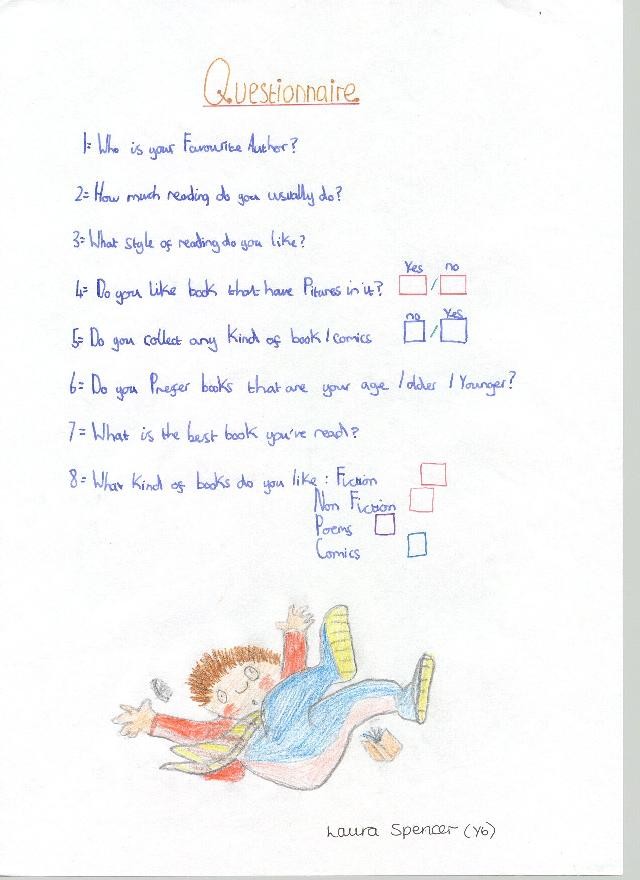 Questionnaire
1= Who is your Favourite Author?
2= How much reading do you usually do?
3= What style of reading do you like?
Yes no
4= Do you like book that have Pitures in it? /
no Yes
5= Do you collect any Kind of book/comics /
6= Do you Prefer books that are your age /older / Younger?
7= What is the best book you've read?
8= What Kind of books do you like : Fiction
Non Fiction
Poems
Comics
Laura Spencer (Y6)